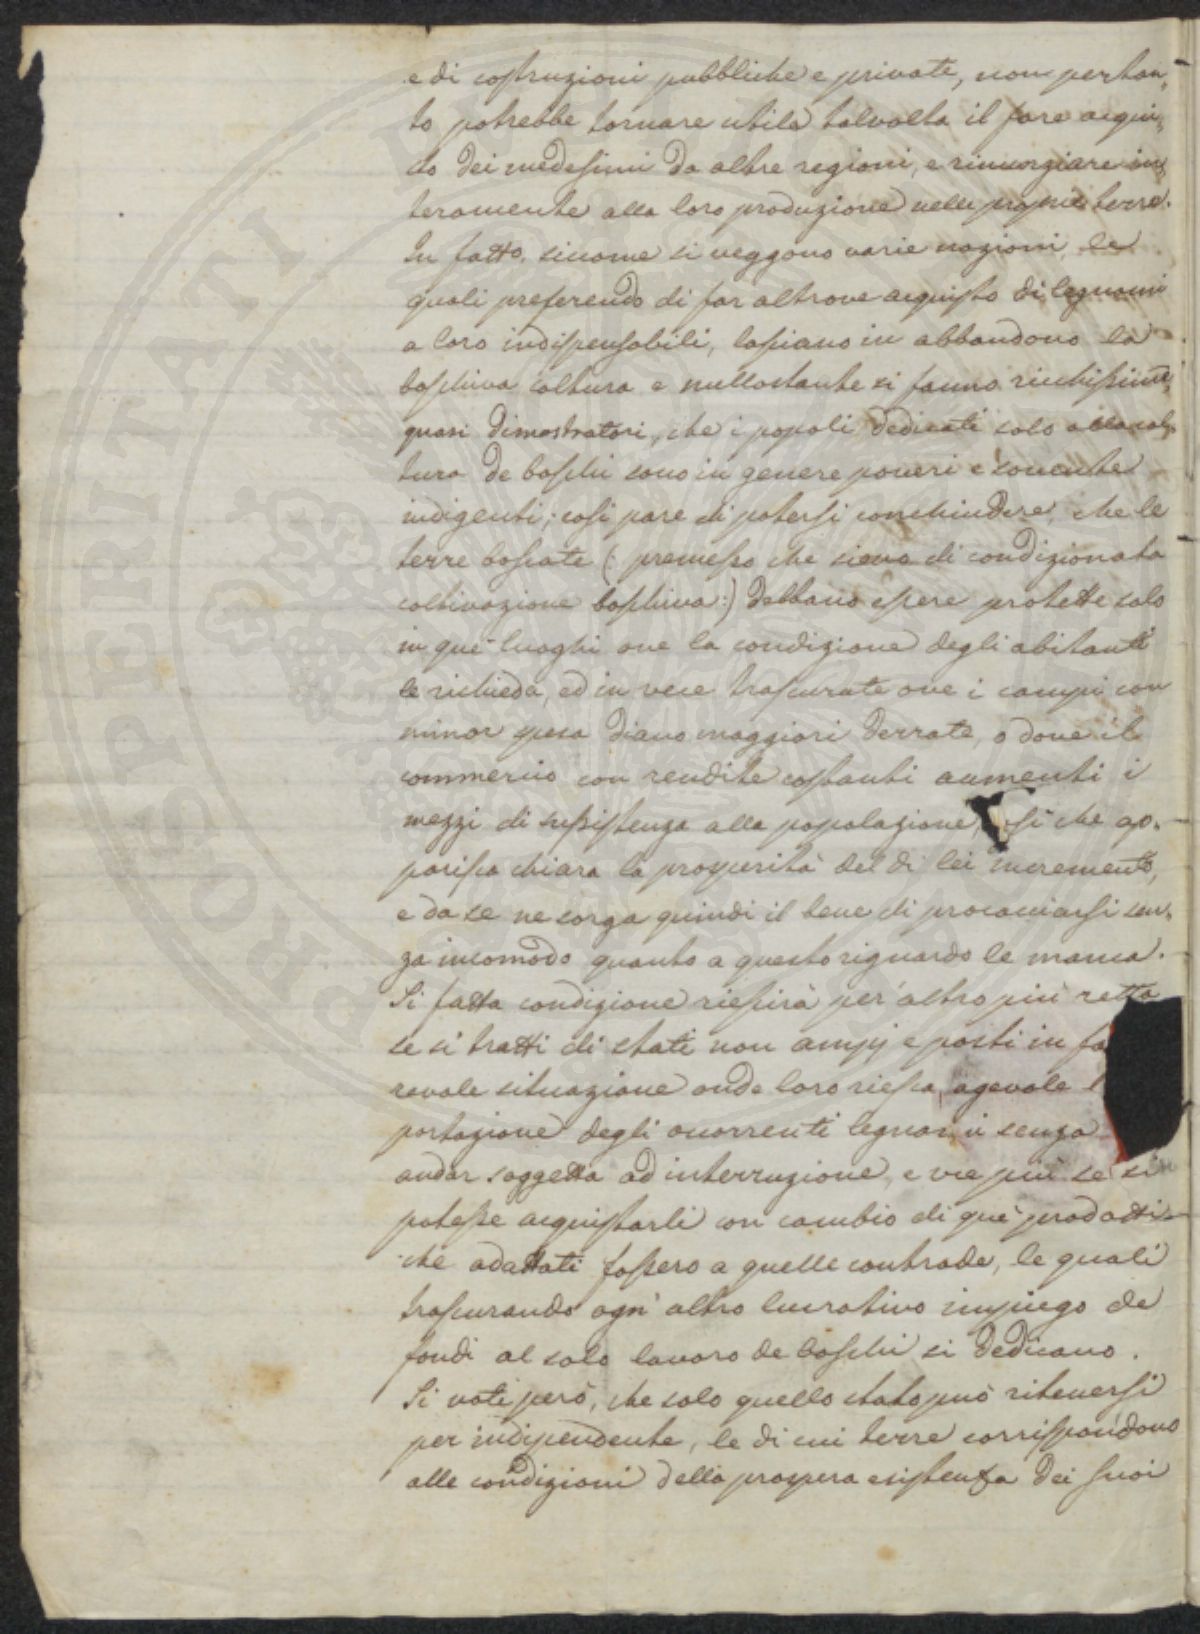 e di costruzioni pubbliche e private, non pertan,
to potrebbe tornare utile talvolta il fare acqui,
sto dei medesimi da altre regioni, e rinunziare in,
teramente alla loro produzione nelle proprie terre.
In fatto, siccome si veggono varie nazioni, le
quali preferendo di far altrove acquisto di legnami
a loro indispensabili, lasciano in abbandono la
boschiva coltura e nullostante si fanno ricchissime,
quasi dimostratori, che i popoli dedicati solo alla col,
tura de boschi sono in genere poveri e sovente
indigenti; cosi pare di potersi conchiudere, che le
terre boscate (: premesso che siano di condizionata
coltivazione boschiva:) debbano essere protette solo
in que' luoghi ove la condizione degli abitanti
le richieda, ed in vece trascurate ove i campi con
minor spesa diano maggiori derrate, o dove il
commercio con rendite costanti aumenti i
mezzi di sussistenza alla popolazione, sì che ap,
parisca chiara la prosperità del di lei incremento,
e da se ne sorga quindi il bene di procacciarsi sen,
za incomodo quanto a questo riguardo le manca.
Si fatta condizione riescirà per altro più retta
se si tratti di stati non ampj e posti in fa
revole situazione onde loro riesca agevole l
portazione degli occorrenti legnami senza
andar soggetta ad interruzione, e vie più se si
potesse acquistarli con cambio di que' prodotti
che adattati fossero a quelle contrade, le quali
trascurando ogn' altro lucrativo impiego de
fondi al solo lavoro de boschi si dedicano.
Si noti però, che solo quello stato può ritenersi
per indipendente, le di cui terre corrispondono
alle condizioni della prospera esistenza dei suoi
PROSPERITATI PUBLI